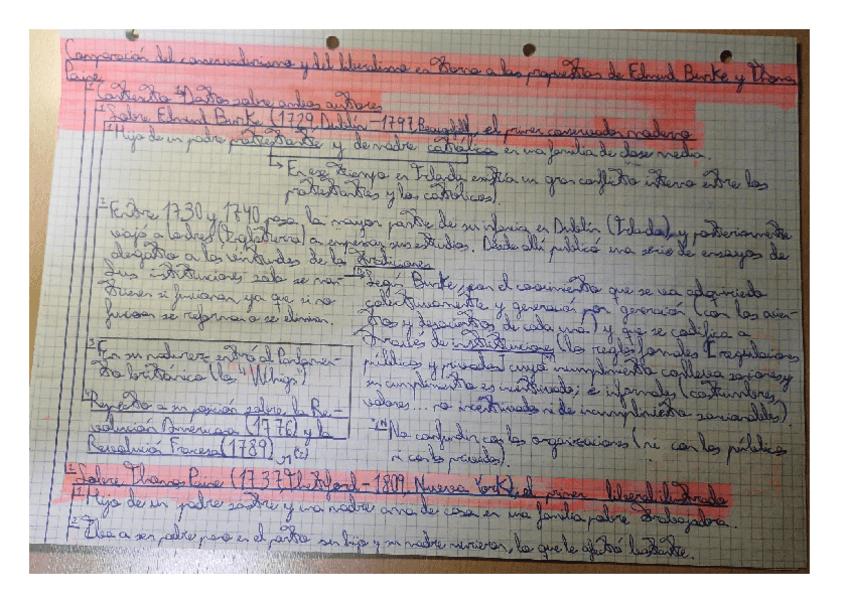 Comparación del conservadurismo y del liberalismo en torno a las propuestas de Edmund Burke y Thomas
Paine
1 Contexto y Datos sobre ambos autores
1 Sobre Edmund Burke (1729, Dublín – 1797, Beaconsfield), el primer conservador moderno
1 Hijo de un padre protestante y de madre católica en una familia de clase media.
→ En ese tiempo en Irlanda existía un gran conflicto interno entre los
protestantes y los católicos.
2 Entre 1730 y 1740 pasa la mayor parte de su infancia en Dublín (Irlanda) y posteriormente
viajó a Londres (Inglaterra) a empezar sus estudios. Desde allí publicó una serie de ensayos de
alegatos a las virtudes de la tradiciones
Las instituciones solo se man-
tienen si funcionan, ya que si no
funcionan se reforman o se eliminan.
Según Burke, son el conocimiento que se va adquiriendo
colectivamente y generación por generación (con los acier-
tos y desaciertos de cada una) y que se codifica a
través de instituciones (las reglas formales [regulaciones
públicas y privadas] cuyo incumplimiento conlleva sanciones y
su cumplimiento es incentivado; e informales (costumbres,
valores... no incentivados ni de incumplimiento sancionables).
No confundir con las organizaciones (ni con las públicas
ni con las privadas).
3 En su madurez entró al Parlamen-
to británico (los "Whigs")
4 Respecto a su posición sobre la Re-
volución Americana (1776) y la
Revolución Francesa (1789)
2 Sobre Thomas Paine (1737, Thetford – 1809, Nueva York), el primer liberal ilustrado
1 Hijo de un padre sastre y una madre ama de casa en una familia pobre trabajadora.
2 Iba a ser padre pero en el parto su hijo y su madre murieron, lo que le afectó bastante.